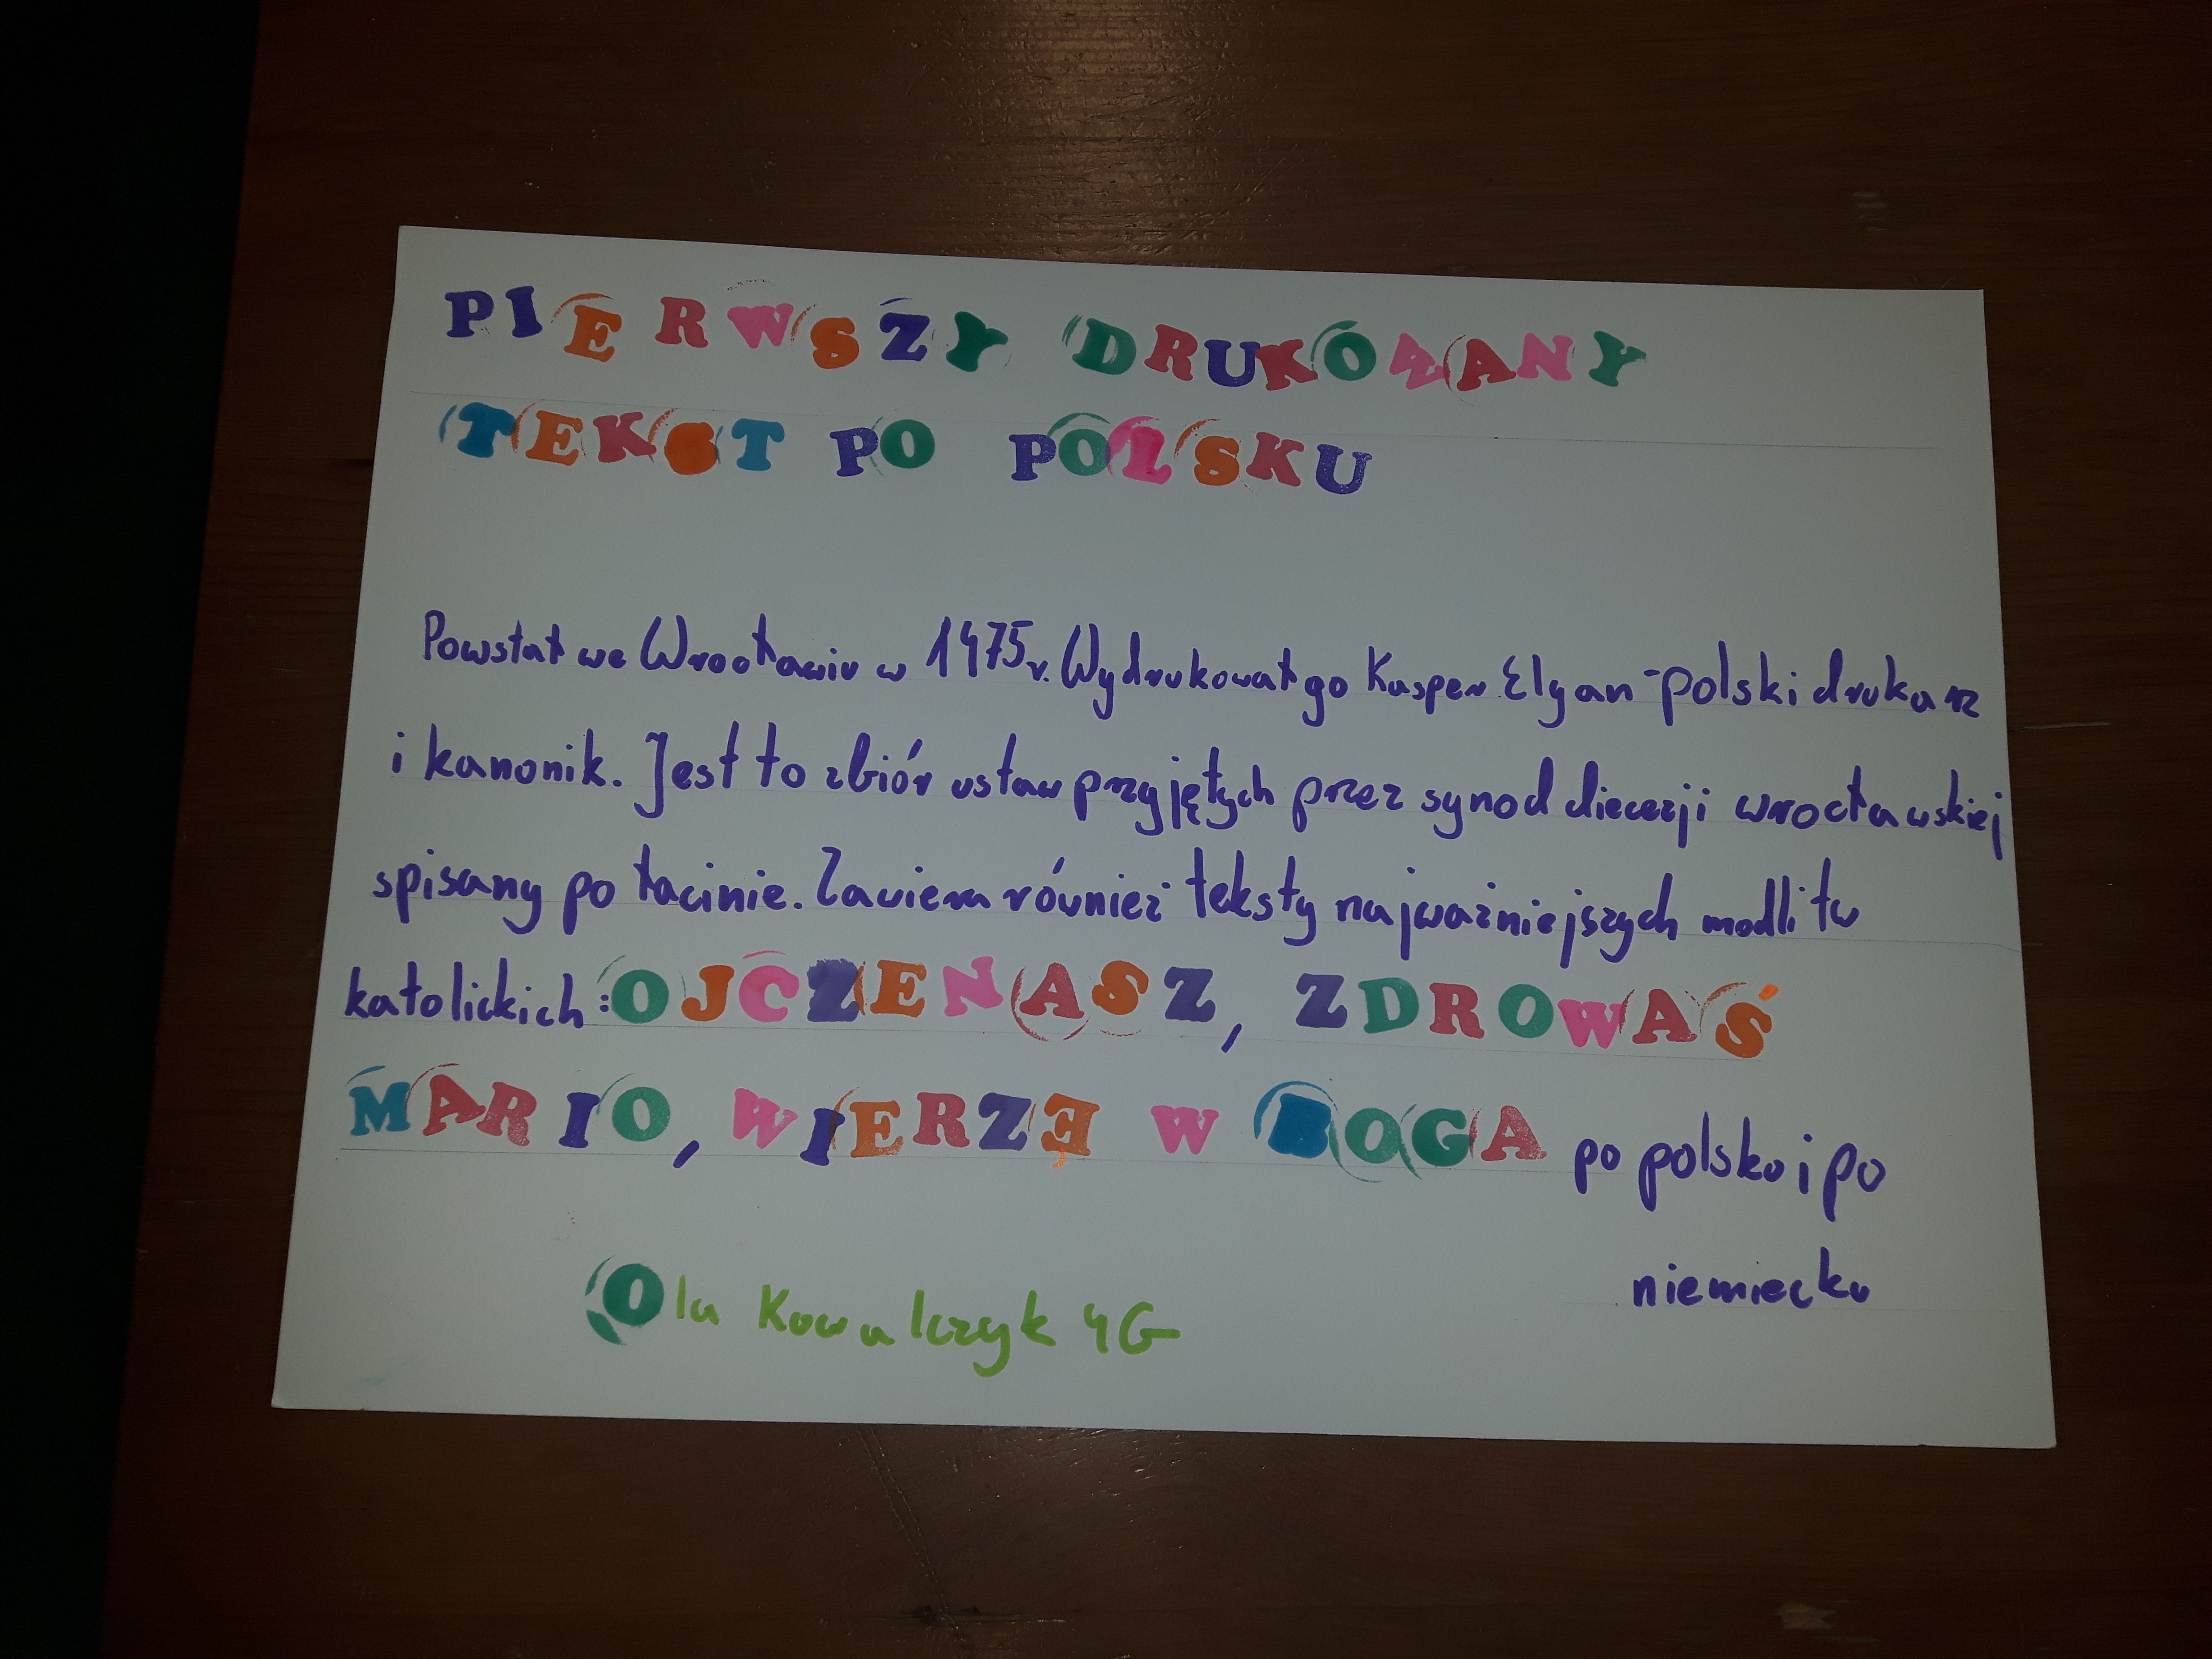 PIERWSZY DRUKOWANY
TEKST PO POLSKU
Powstał we Wrocławiu w 1475r. Wydrukował go Kasper Elyan - polski drukarz
i kanonik. Jest to zbiór ustaw przyjętych przez synod diecezji wrocławskiej
spisany po łacinie. Zawiera również teksty najważniejszych modlitw
katolickich: OJCZENASZ, ZDROWAŚ
MARIO, WIERZĘ W BOGA po polsku i po
niemiecku
Ola Kowalczyk 4G